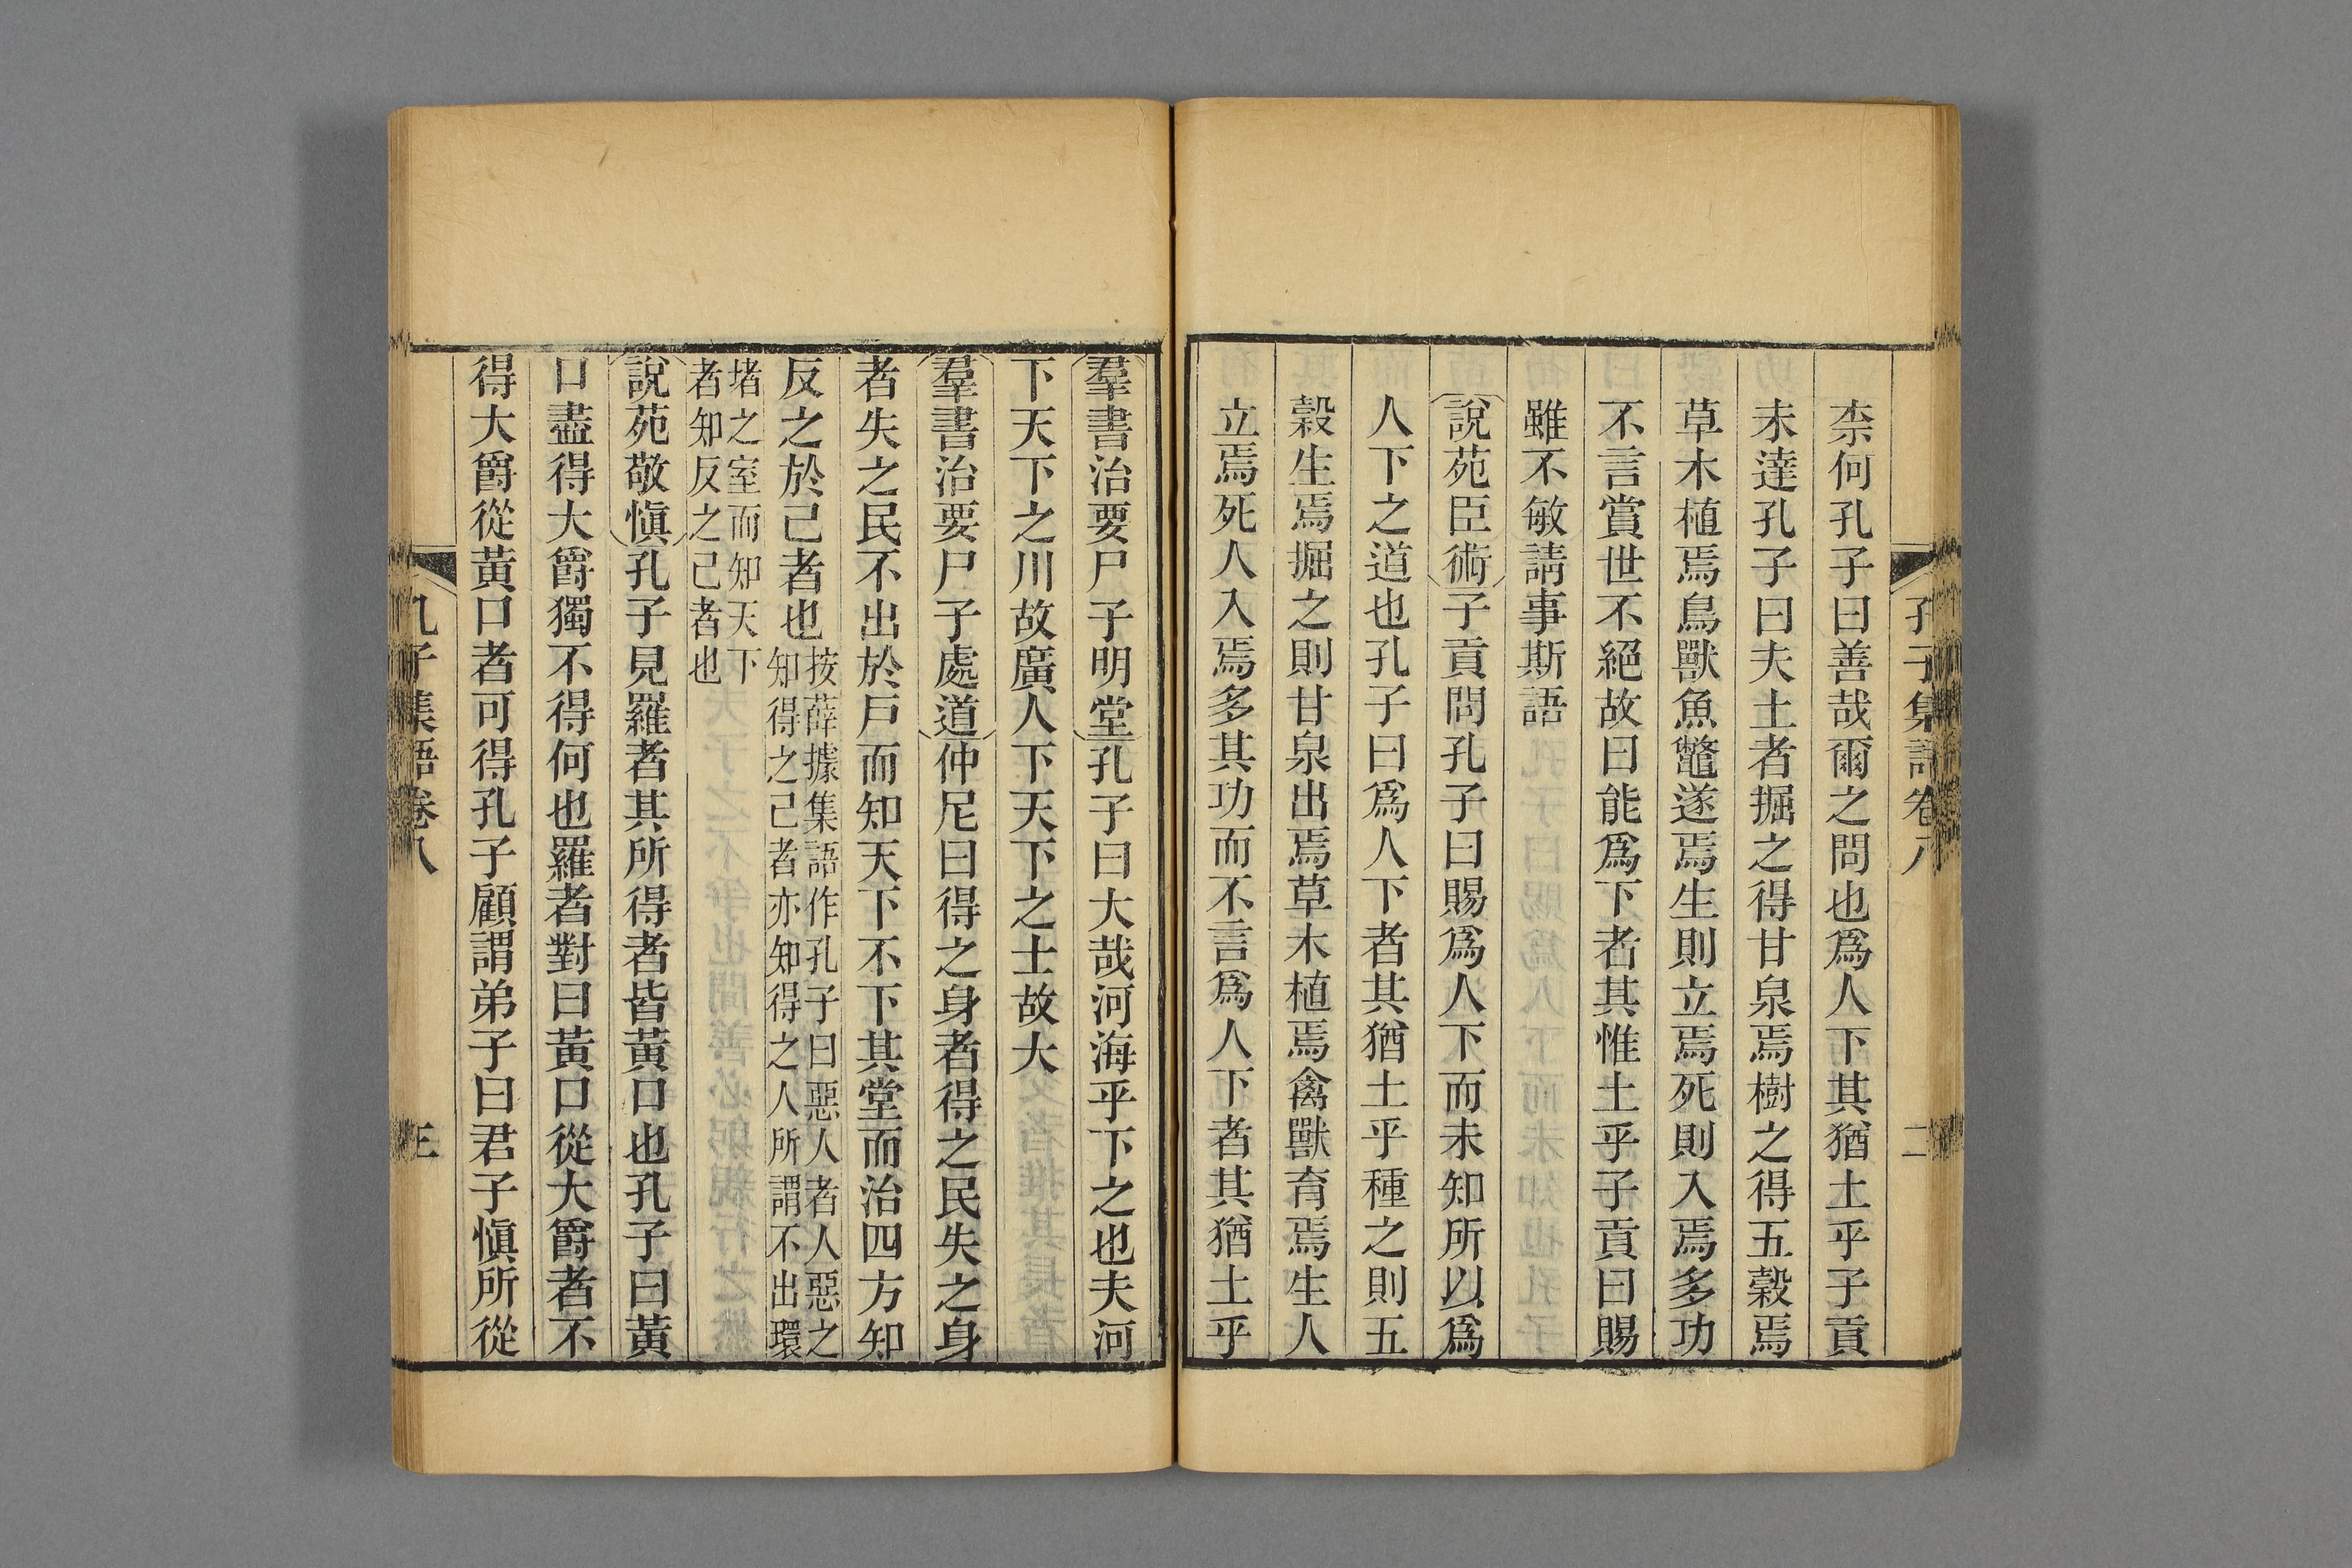 孔子集語卷八 二
柰何孔子曰善哉爾之問也爲人下其猶土乎子貢
未達孔子曰夫土者掘之得甘泉焉樹之得五穀焉
草木植焉鳥獸魚鼈遂焉生則立焉死則入焉多功
不言賞世不絕故曰能爲下者其惟土乎子貢曰賜
雖不敏請事斯語
說苑臣術子貢問孔子曰賜爲人下而未知所以爲
人下之道也孔子曰爲人下者其猶土乎種之則五
穀生焉掘之則甘泉出焉草木植焉禽獸育焉生人
立焉死人入焉多其功而不言爲人下者其猶土乎
羣書治要尸子明堂孔子曰大哉河海乎下之也夫河
下天下之川故廣人下天下之士故大
羣書治要尸子處道仲尼曰得之身者得之民失之身
者失之民不出於戶而知天下不下其堂而治四方知
反之於己者也
按薛據集語作孔子曰惡人者人惡之
知得之己者亦知得之人所謂不出環
堵之室而知天下
者知反之己者也
說苑敬愼孔子見羅者其所得者皆黃口也孔子曰黃
口盡得大爵獨不得何也羅者對曰黃口從大爵者不
得大爵從黃口者可得孔子顧謂弟子曰君子愼所從
孔子集語卷八 三